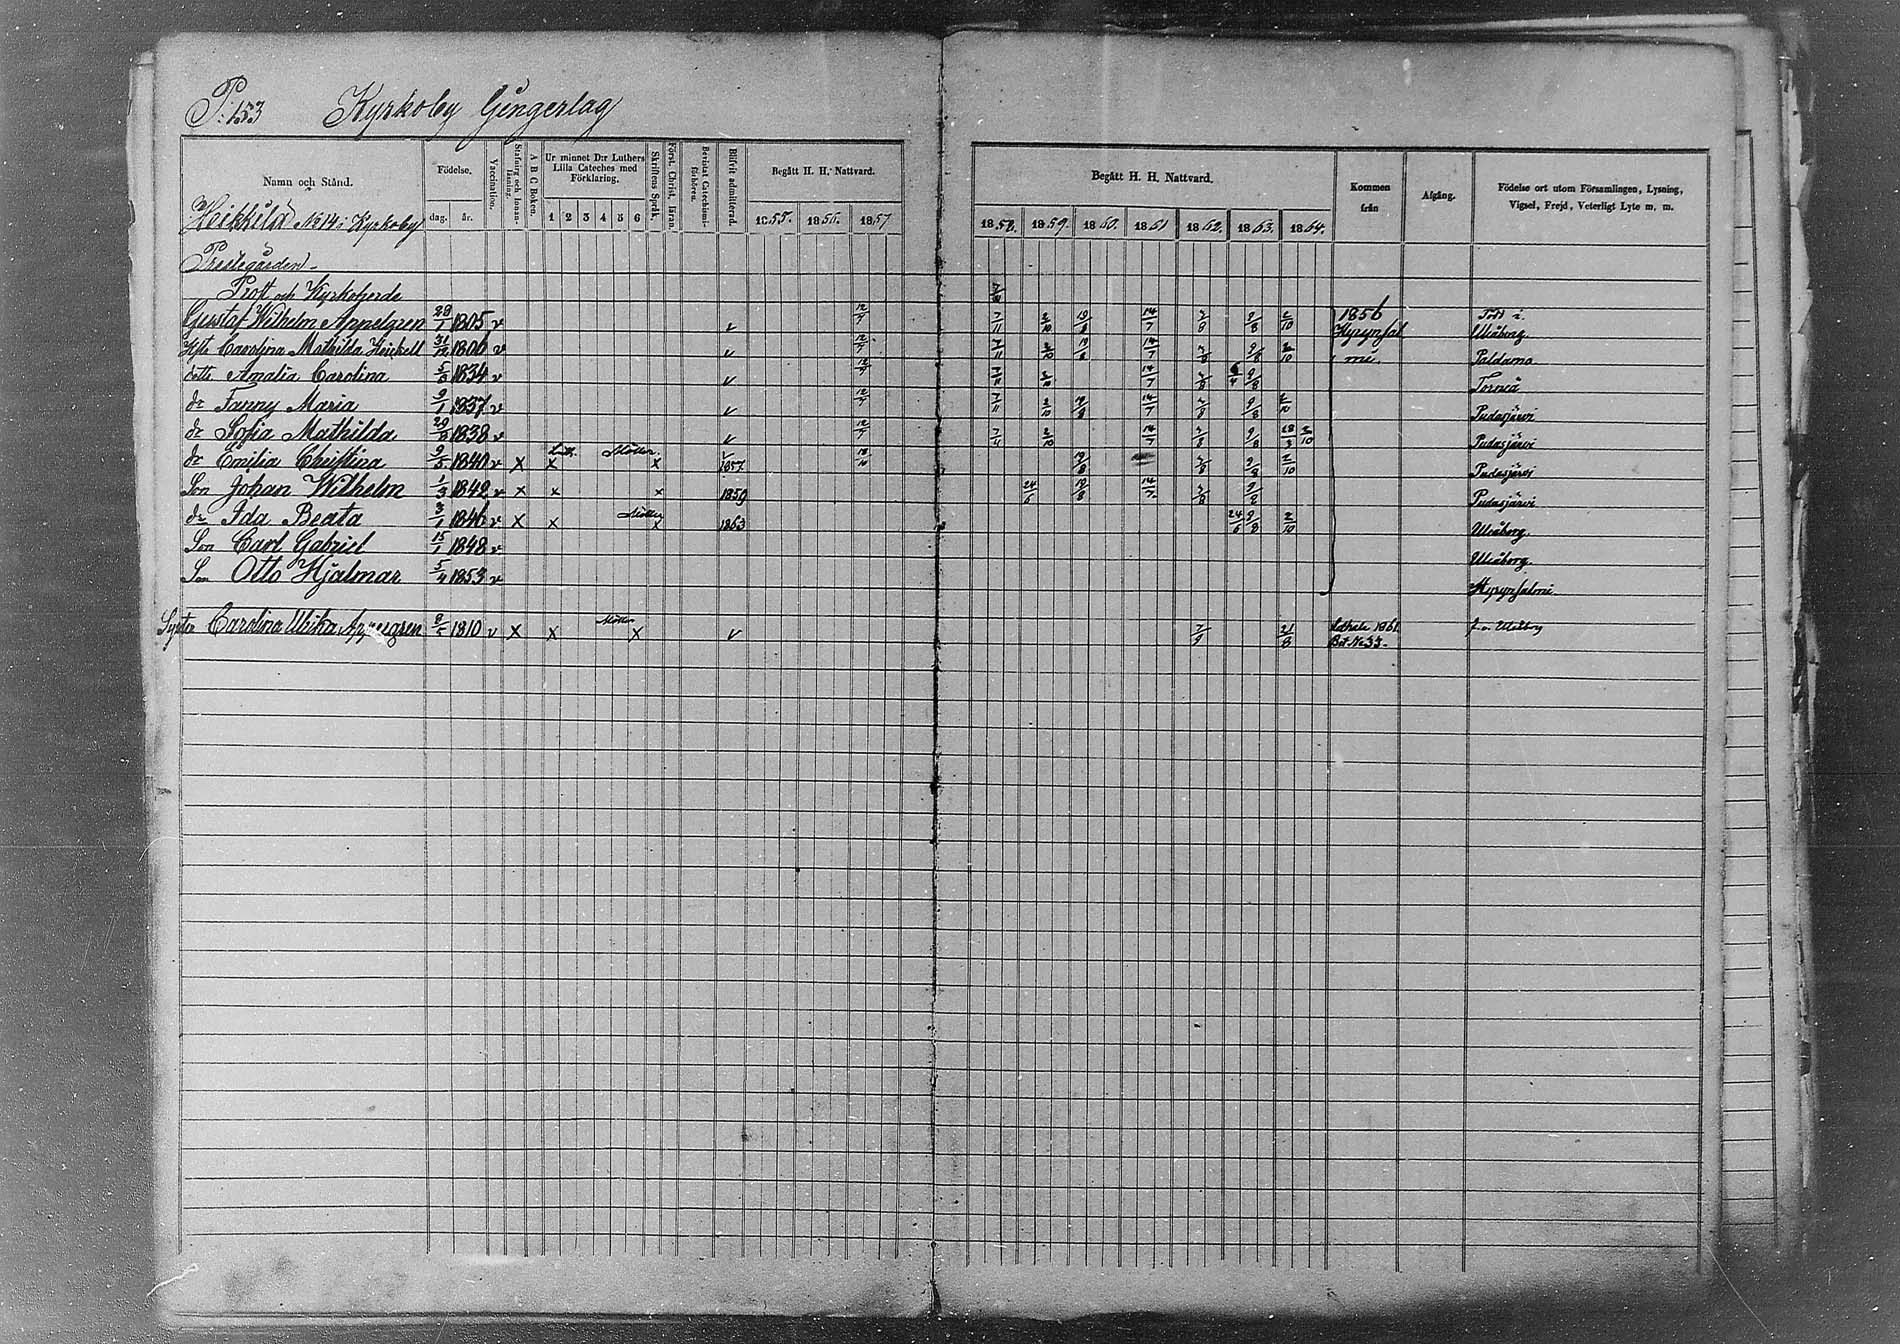 P: 153 Kyrkoby Gengerlag
Namn och Stånd. Födelse. dag. år. Vaccination. Stafning och Innanläsning. A B C Boken. Ur minnet D:r Luthers Lilla Cateches med Förklaring. 1 2 3 4 5 6 Skriftens Språk. Först. Christ. läran. Bevistat Catechismi-förhören. Blifvit admitterad. Begått H. H. Nattvard. 1855. 1856. 1857 Begått H. H. Nattvard. 1858. 1859. 1860. 1861 1862. 1863. 1864. Kommen från Afgång. Födelse ort utom Församlingen, Lysning, Vigsel, Frejd, Veterligt Lyte m. m.
Heikkilä No 14 i Kyrkoby
Prestegården
Prost och Kyrkoherde 7/11
Gustaf Wilhelm Appelgren 29/1 1805 v v 12/7 7/11 2/10 19/8 14/7 9/8 2/10 1856 Född i Uleåborg
Carolina Mathilda Heickell 31/12 1806 v v 12/7 7/11 2/10 19/8 14/7 9/8 2/10 Hyrynsalmi Paldamo
Amalia Carolina 1834 v v 12/7 7/11 2/10 14/7 9/8 Torneå
de Fanny Maria 9/1 1837 v v 12/7 7/11 2/10 19/8 14/7 9/8 2/10 Pudasjärvi
de Sofia Mathilda 1838 v v 12/7 7/11 2/10 14/7 9/8 2/10 Pudasjärvi
de Emilia Christina 9/5 1840 v x x x v 1857 19/8 9/8 2/10 Pudasjärvi
Son Johan Wilhelm 1/3 1842 v x x x 1859 24/6 19/8 14/7 9/8 Pudasjärvi
de Ida Beata 3/1 1846 v x x x 1863 24/6 9/8 2/10 Uleåborg.
Son Carl Gabriel 15/1 1848 v Uleåborg.
Son Otto Hjalmar 5/4 1853 v Hyrynsalmi
Syster Carolina Ulrika Appelgren 8/5 1810 v x x x v 7/9 21/8 1861 Bet. No 33. f. i Uleåborg